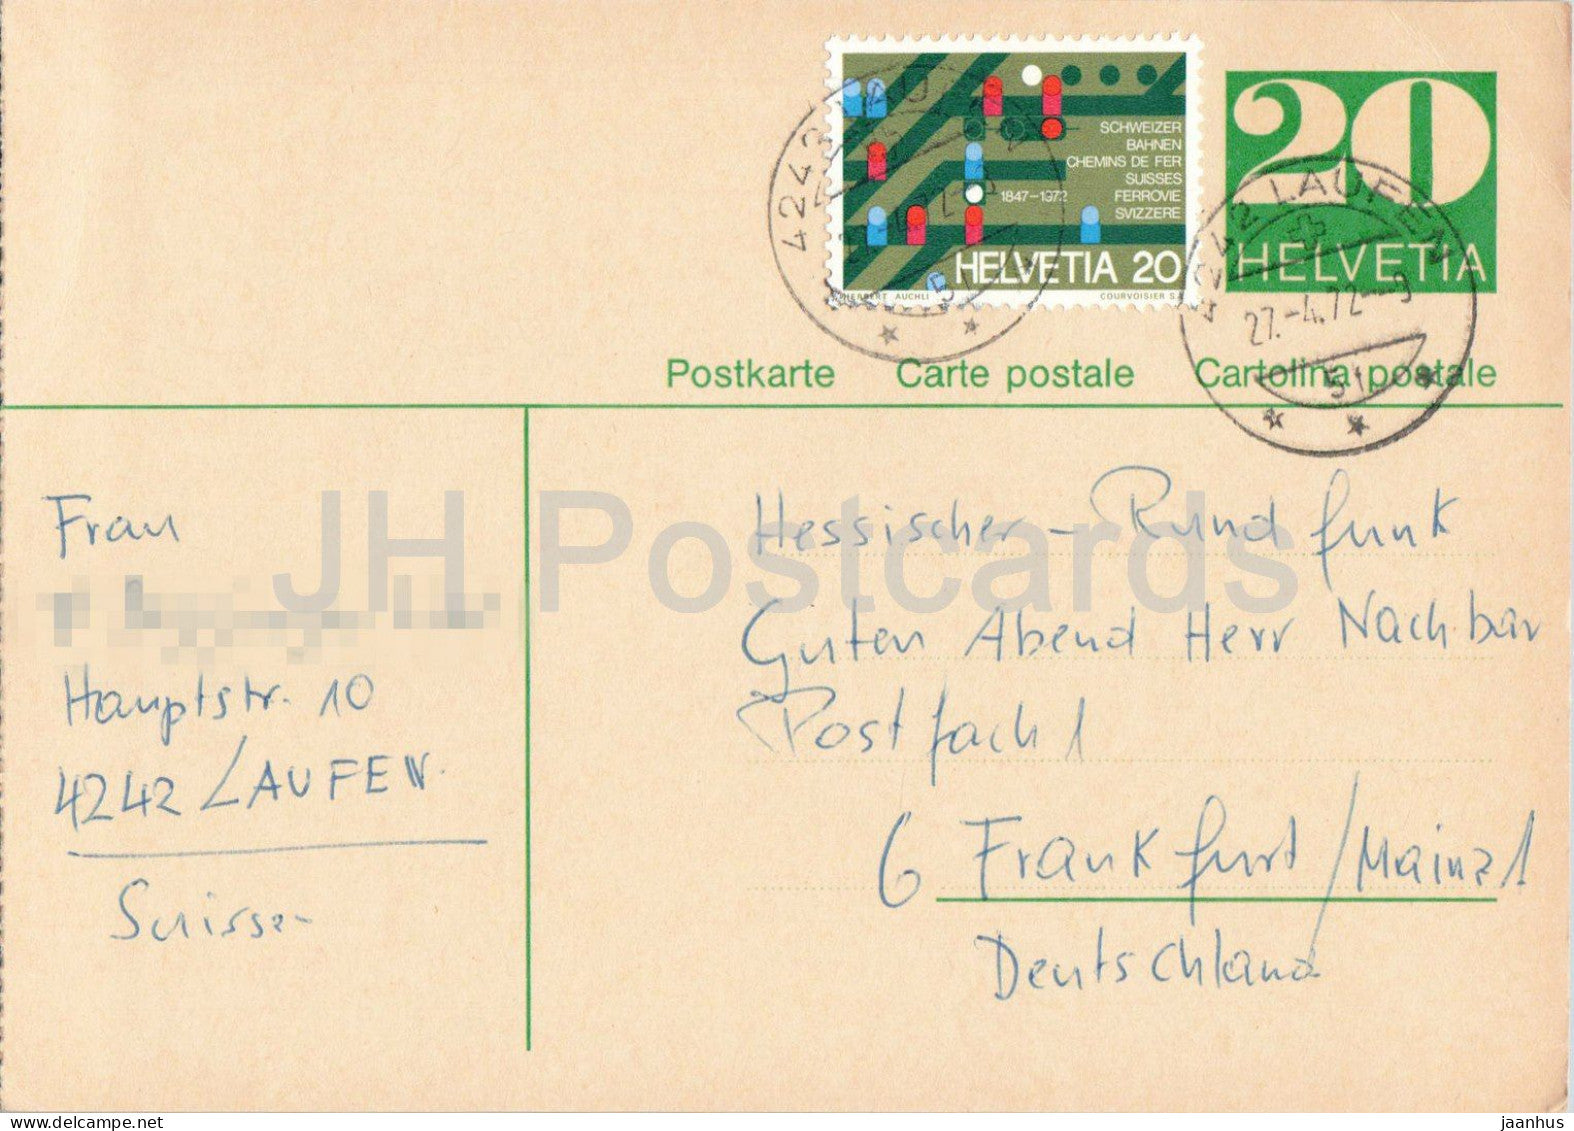 SCHWEIZER
BAHNEN
CHEMINS DE FER
SUISSES
1847-1972 FERROVIE
SVIZZERE
HELVETIA 20
HERBERT AUCHLI COURVOISIER S.A
20
HELVETIA
4242 LAUFEN
27.-4.72-9
51
Postkarte Carte postale Cartolina postale
Frau
Hauptstr. 10
4242 LAUFEN.
Suisse
Hessischer-Rundfunk
Guten Abend Herr Nachbar
Postfach 1
6 Frankfurt/Main 1
Deutschland
JH Postcards
jaanhus